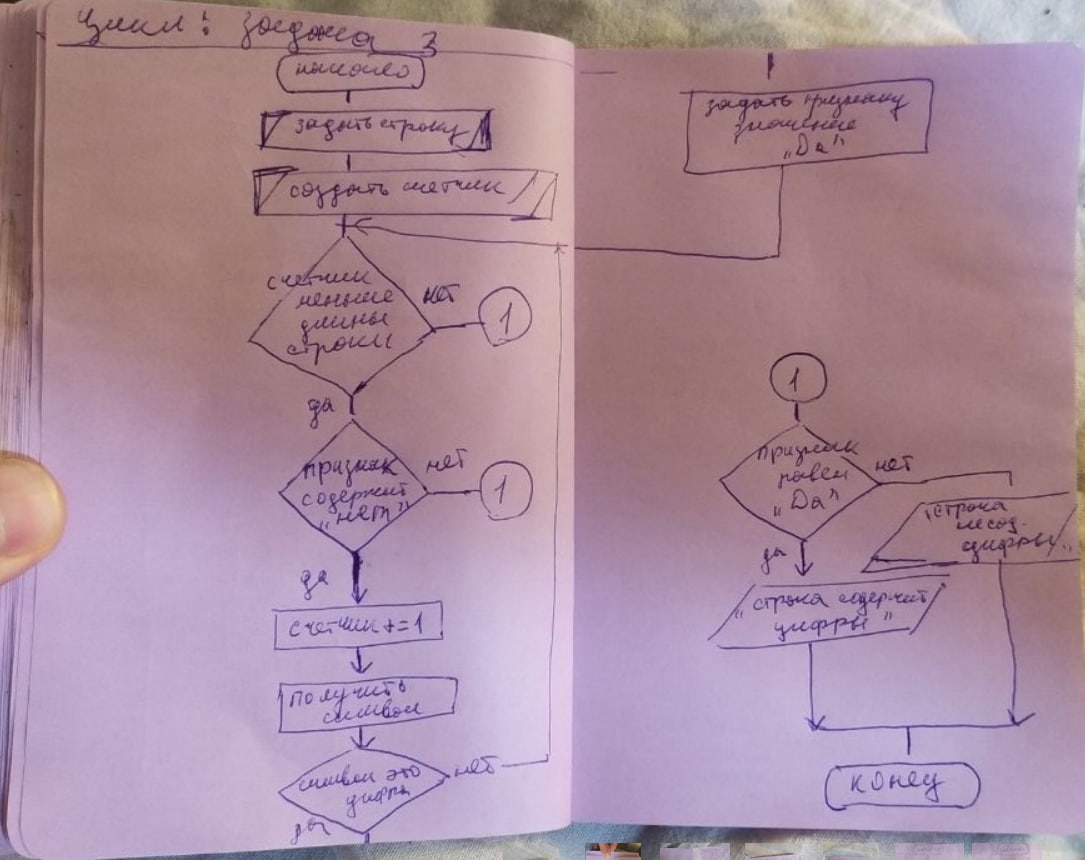 Цикл: Задача 3
начало
задать строку
создать счетчик
счетчик
меньше
длины
строки
нет
1
да
признак
содержит
„нет"
нет
1
да
счетчик += 1
получить
символ
символ это
цифра
нет
да
задать признаку
значение
„Да"
1
признак
равен
„Да"
нет
„строка
не сод.
цифры"
да
„строка содержит
цифры"
конец